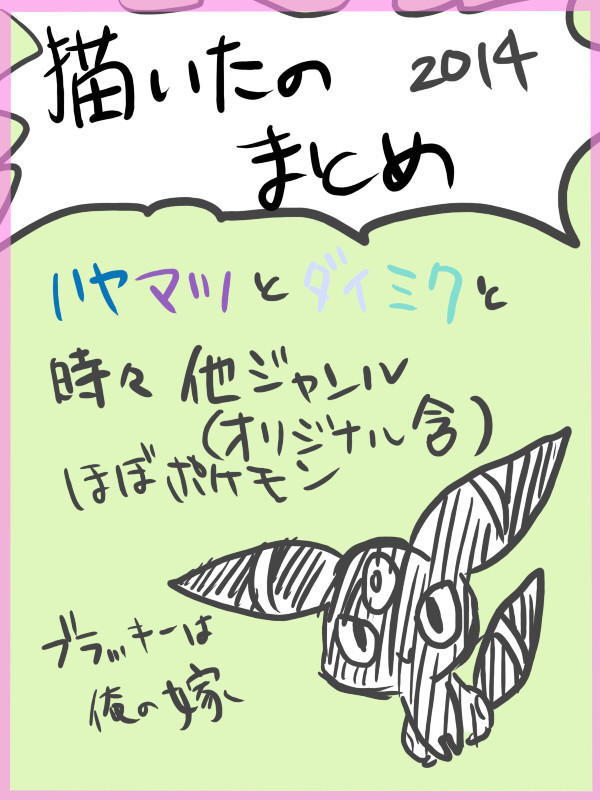 描いたの 2014
まとめ
ハヤマツとダイミクと
時々 他ジャンル
(オリジナル含)
ほぼポケモン
ブラッキーは
俺の嫁